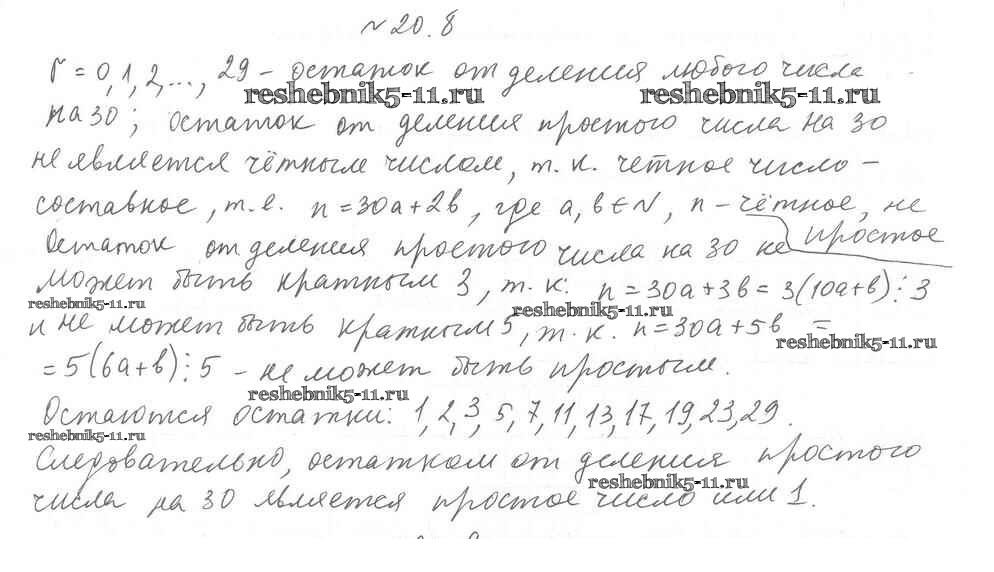 №20.8
r = 0, 1, 2, ..., 29 – остаток от деления любого числа
reshebnik5-11.ru reshebnik5-11.ru
на 30; остаток от деления простого числа на 30
не является чётным числом, т.к. четное число –
составное, т.е. n = 30a + 2b, где a, b ∈ N, n – чётное, не простое
Остаток от деления простого числа на 30 не
может быть кратным 3, т.к. n = 30a + 3b = 3(10a + b) ⋮ 3
reshebnik5-11.ru reshebnik5-11.ru
и не может быть кратным 5, т.к. n = 30a + 5b =
reshebnik5-11.ru
= 5(6a + b) ⋮ 5 – не может быть простым.
reshebnik5-11.ru
Остаются остатки: 1, 2, 3, 5, 7, 11, 13, 17, 19, 23, 29.
reshebnik5-11.ru
Следовательно, остатком от деления простого
reshebnik5-11.ru
числа на 30 является простое число или 1.